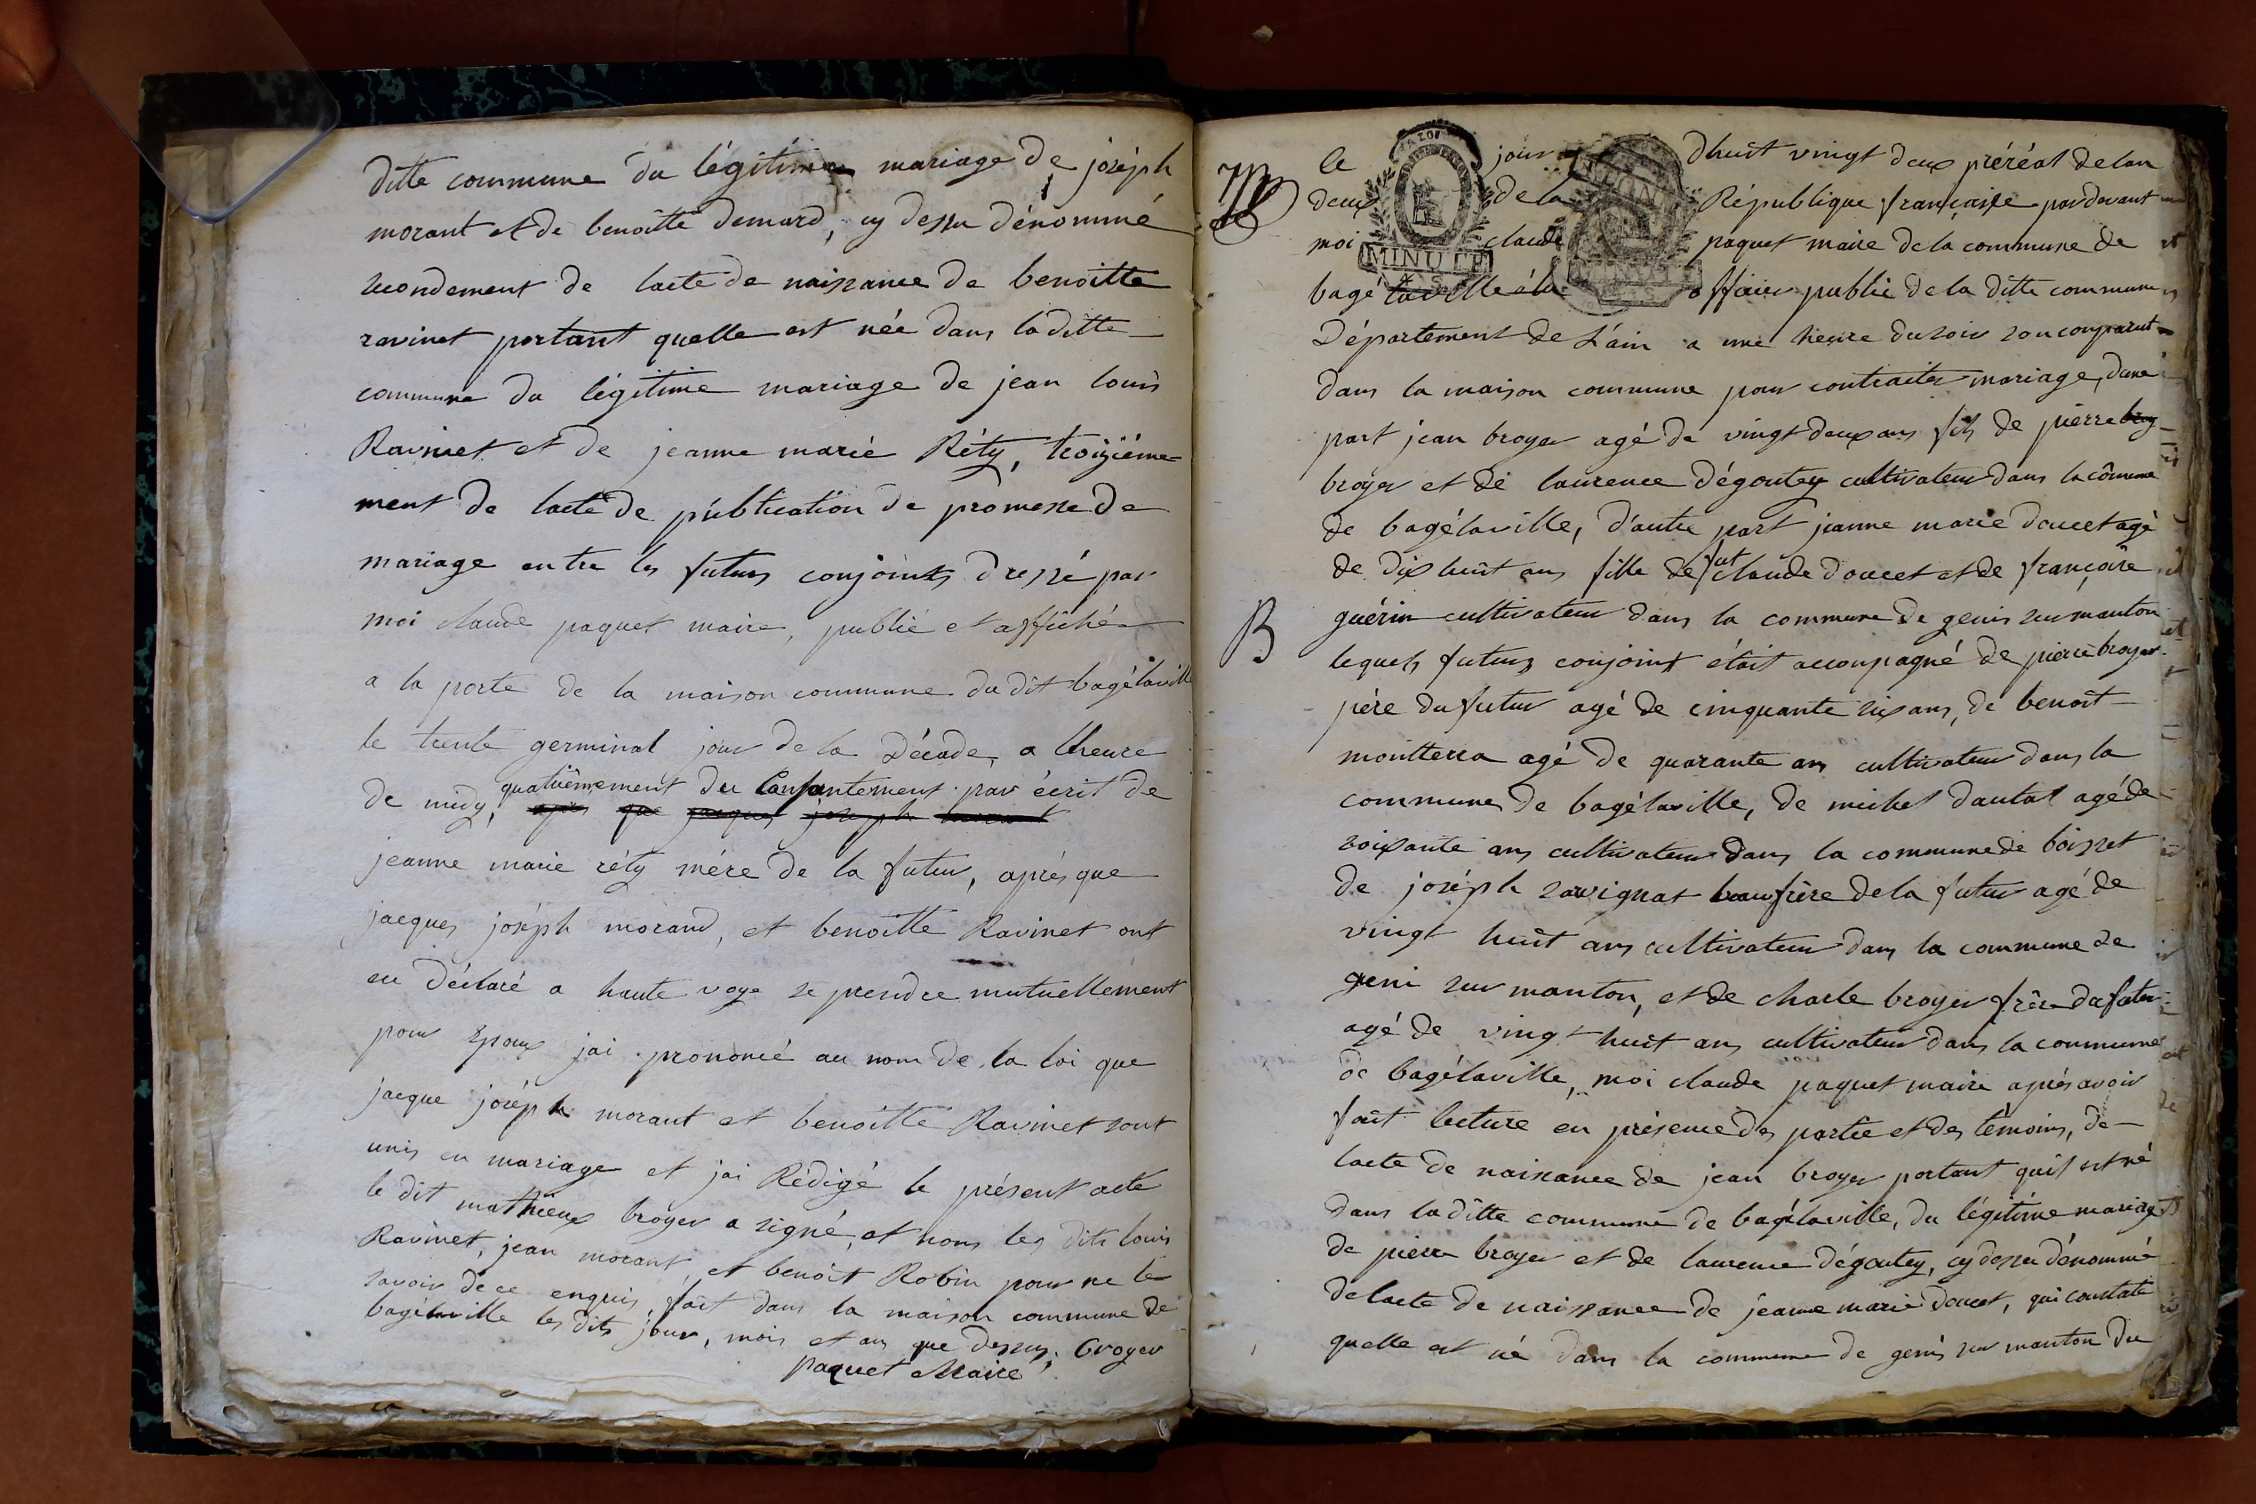 ditte commune du légitime mariage de joséph
morant et de benoitte demard, cy dessu dénommé
secondement de lacte de naissance de benoitte
ravinet portant quelle est née dans la ditte
commune du légitime mariage de jean louis
Ravinet et de jeanne marie Réty, troiziéme-
ment de lacte de publication de promesse de
mariage entre les futurs conjoints dressé par
moi claude paquet maire, publié et affiché
a la porte de la maison commune du dit bagélaville
le trente germinal jour de la Décade, a lheure
quatriémement du Consantement par écrit de
de midy, après que jacques joseph morant
jeanne marie réty mére de la futur, aprés que
jacques joséph morand, et benoitte Ravinet ont
eu déclaré a haute voye se prendre mutuellement
pour Epoux jai prononcé au nom de la loi que
jacque joséph morant et benoitte Ravinet sont
unis en mariage et jai Rédigé le présent acte
le dit mathieux broyer a signé, et nons les dits louis
Ravinet, jean morant et benoit Robin pour ne le
savoir de ce enquis, fait dans la maison commune de
bagélaville les dits jour, mois et an que dessus. broyer
paquet Maire
le jour dhuit vingt deux préréal de lan
deux de la République française pardevant
moi claude paquet maire de la commune de
bagé laville élu officier public de la ditte commune
Département de L'ain a une heure du soir son comparut
dans la maison commune pour contracter mariage, dune
part jean broyer agé de vingt deux ans fils de pierre broy
broyer et de laurence dégoutey cultivateur dans la cômune
de bagélaville, d'autre part jeanne marie doucet agé
fut
de dix huit ans fille de claude doucet et de françoise
B
guérin cultivateur dans la commune de genis sur manton
lequels futurs conjoint étoit accompagné de pierre broyer
pére du futur agé de cinquante six ans, de benoit
montterra agé de quarante ans cultivateur dans la
commune de bagélaville, de michel dautal agé de
soixante ans cultivateur dans la commune de boisset
de joséph savignat beaufrère de la futur agé de
vingt huit ans cultivateur dans la commune de
geni sur manton, et de charle broyer frère du futur
agé de vingt huit ans cultivateur dans la commune
de bagélaville, moi claude paquet maire aprés avoir
fait lecture en présence des partie et des témoins, de
lacte de naissance de jean broyer portant quil est né
dans la ditte commune de bagélaville, du légitime mariage
de pierre broyer et de laurence dégoutey, cy dessu dénommé
de lacte de naissance de jeanne marie doucet, qui constate
quelle est né dans la commune de genis sur manton du
MINUTE